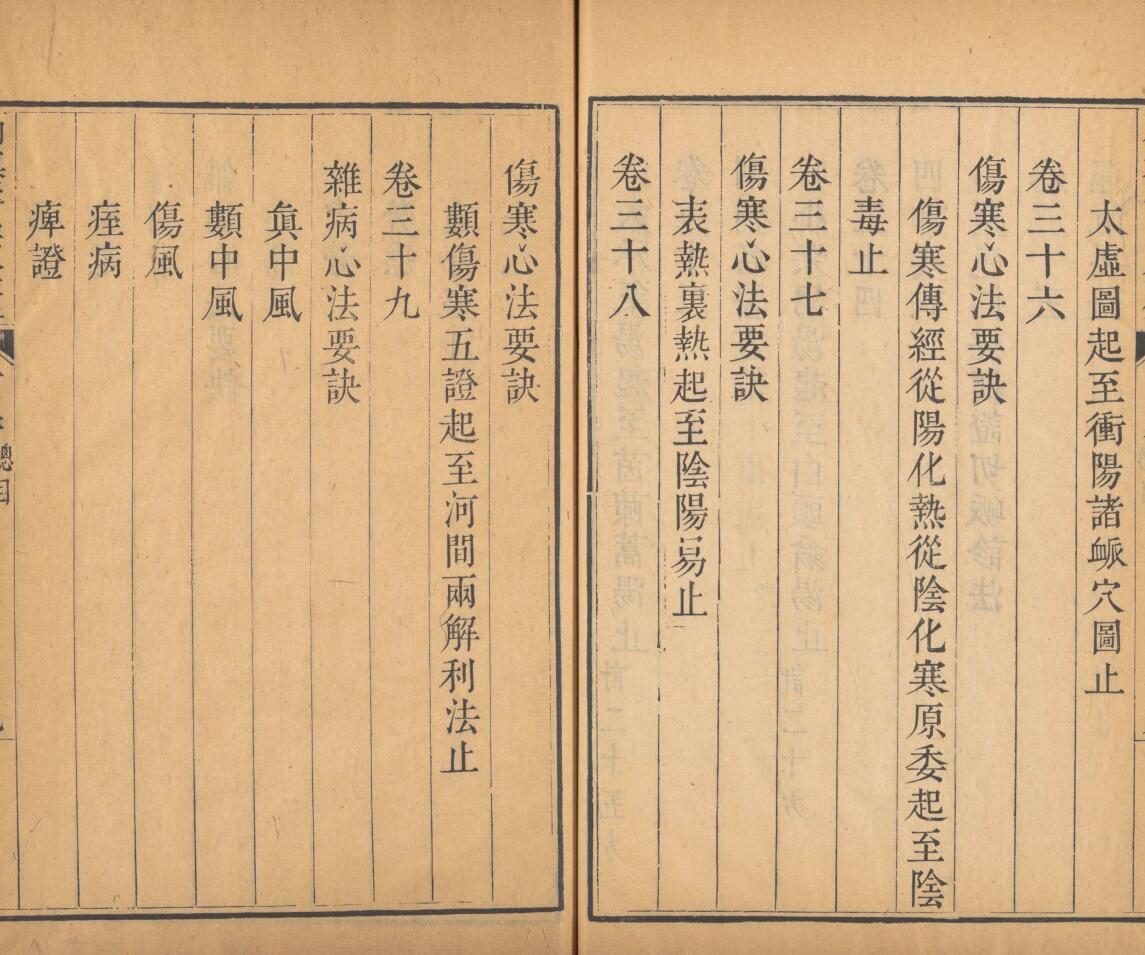 太虛圖起至衝陽諸衇穴圖止
卷三十六
傷寒心法要訣
傷寒傳經從陽化熱從陰化寒原委起至陰
毒止
卷三十七
傷寒心法要訣
表熱裏熱起至陰陽易止
卷三十八
傷寒心法要訣
類傷寒五證起至河間兩解利法止
卷三十九
雜病心法要訣
眞中風
類中風
傷風
痓病
痺證
總目